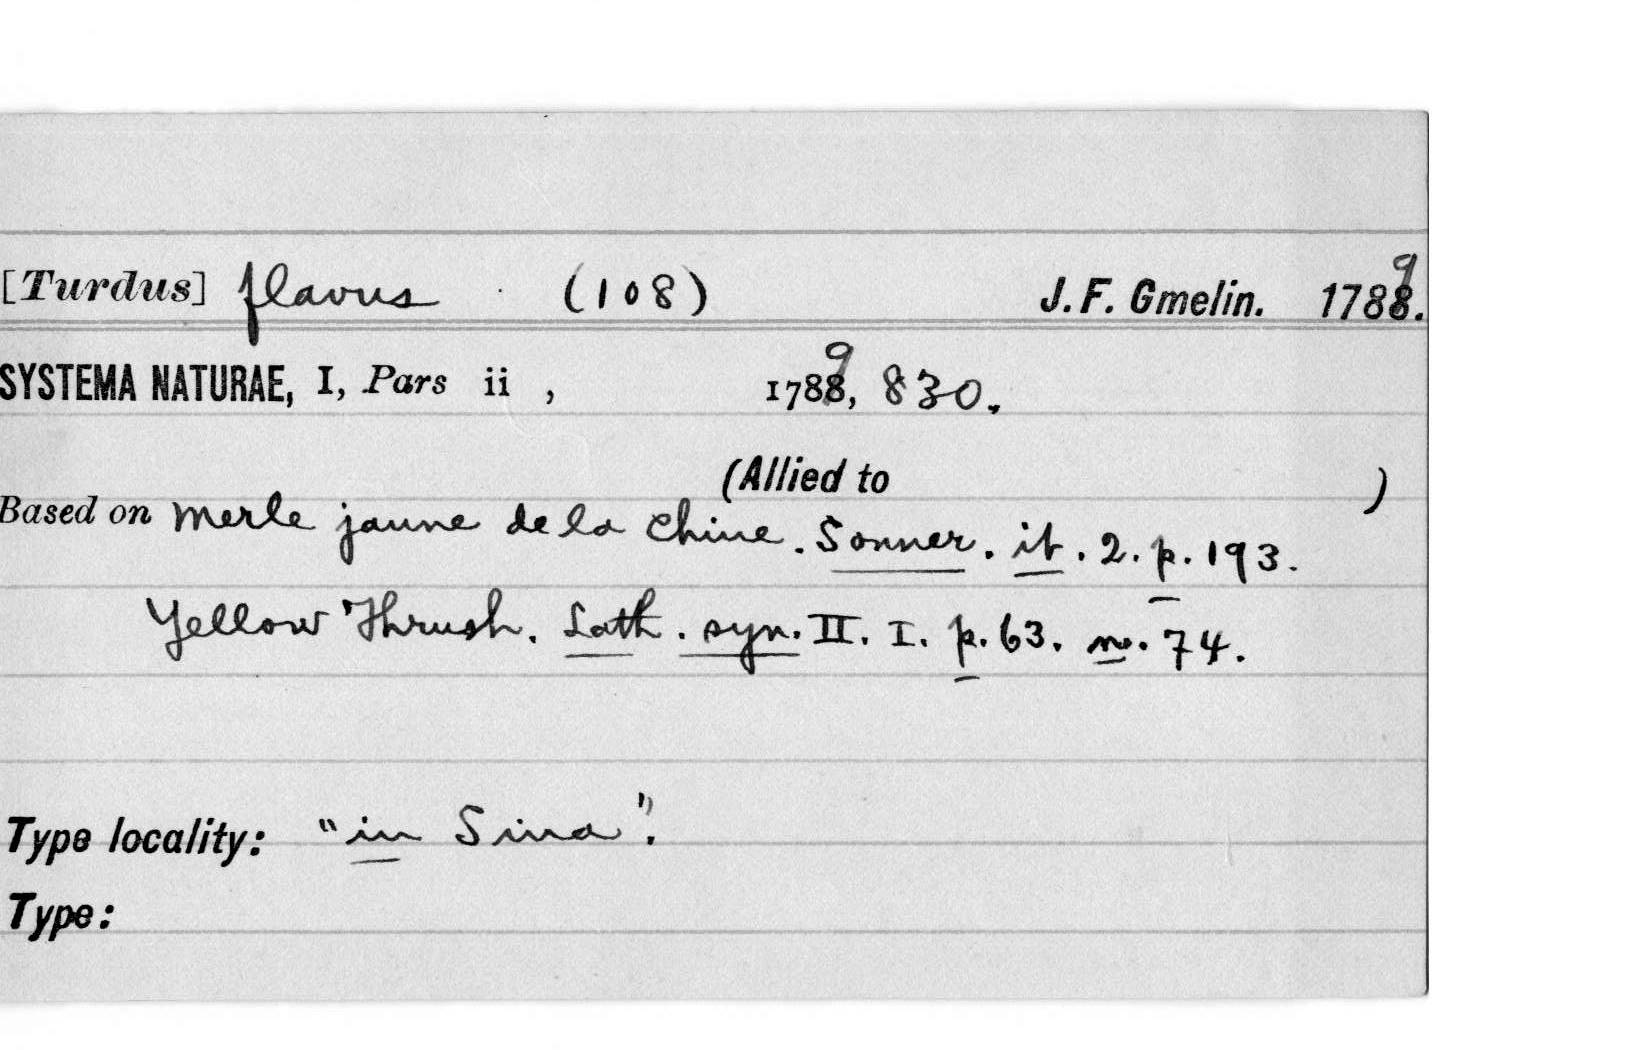 [Turdus] flavus (108) J. F. Gmelin. 1789.
SYSTEMA NATURAE, I, Pars ii , 1789, 830.
(Allied to )
Based on Merle jaune de la Chine. Sonner. it. 2. p. 193.
Yellow Thrush. Lath. syn. II. I. p. 63. no. 74.
Type locality: "in Sina".
Type: